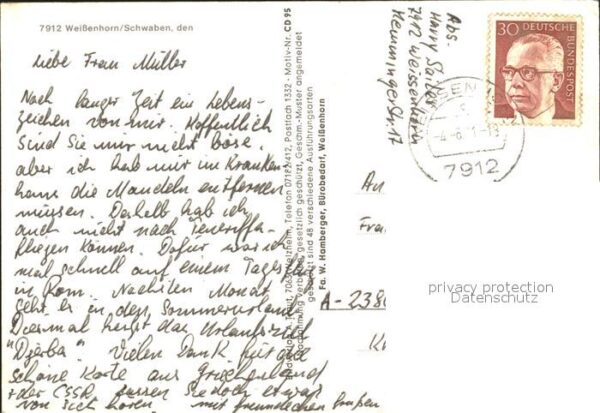 7912 Weißenhorn/Schwaben, den
Liebe Frau Müller
Nach langer Zeit ein Lebens-
zeichen von mir. Hoffentlich
sind Sie mir nicht böse.
aber ich hab mir im Kranken-
haus die Mandeln entfernen
müssen. Deshalb hab ich
auch nicht nach Teneriffa
fliegen können. Dafür war ich
mal schnell auf einem Tagesflug
in Rom. Nächsten Monat
geht es in den Sommerurlaub
Diesmal heißt das Urlaubsziel
"Djerba" Vielen Dank für die
schöne Karte aus Griechenland
+ der CSSR. Lassen Sie doch etwas
von sich hören. mit freundlichen Grüßen
7062 Welzheim, Telefon 07182/412, Postfach 1332 - Motiv-Nr. CD 95
verboten, gesetzlich geschützt, Geschm.-Muster angemeldet
gesetzt sind 48 verschiedene Ausführungsarten
Fa. W. Hamberger, Bürobedarf, Weißenhorn
Abs:
Harry
7912 Weissenhorn
Memmingerstr. 17
30 DEUTSCHE
BUNDESPOST
7912
An
Fra
A-238
privacy protection
Datenschutz